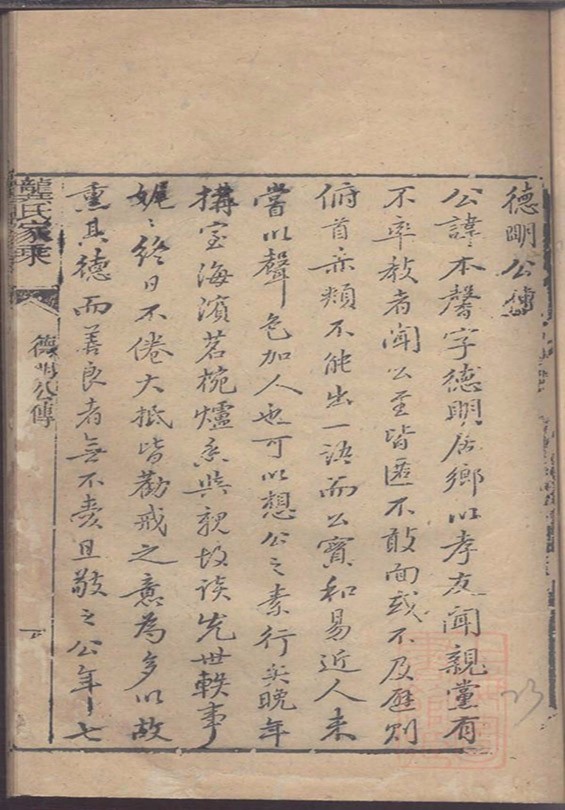 德明公傳
公諱本馨字德明居鄉以孝友聞親黨有
不率教者聞公至皆匿不敢面或不及避則
俯首泚顙不能出一語而公實和易近人未
嘗以聲色加人也可以想公之素行矣晚年
搆室海濱茗椀爐香與親故談先世軼事
娓〻終日不倦大抵皆勸戒之意為多以故
熏其德而善良者無不愛且敬之公年十七
龔氏家乘
德明公傳